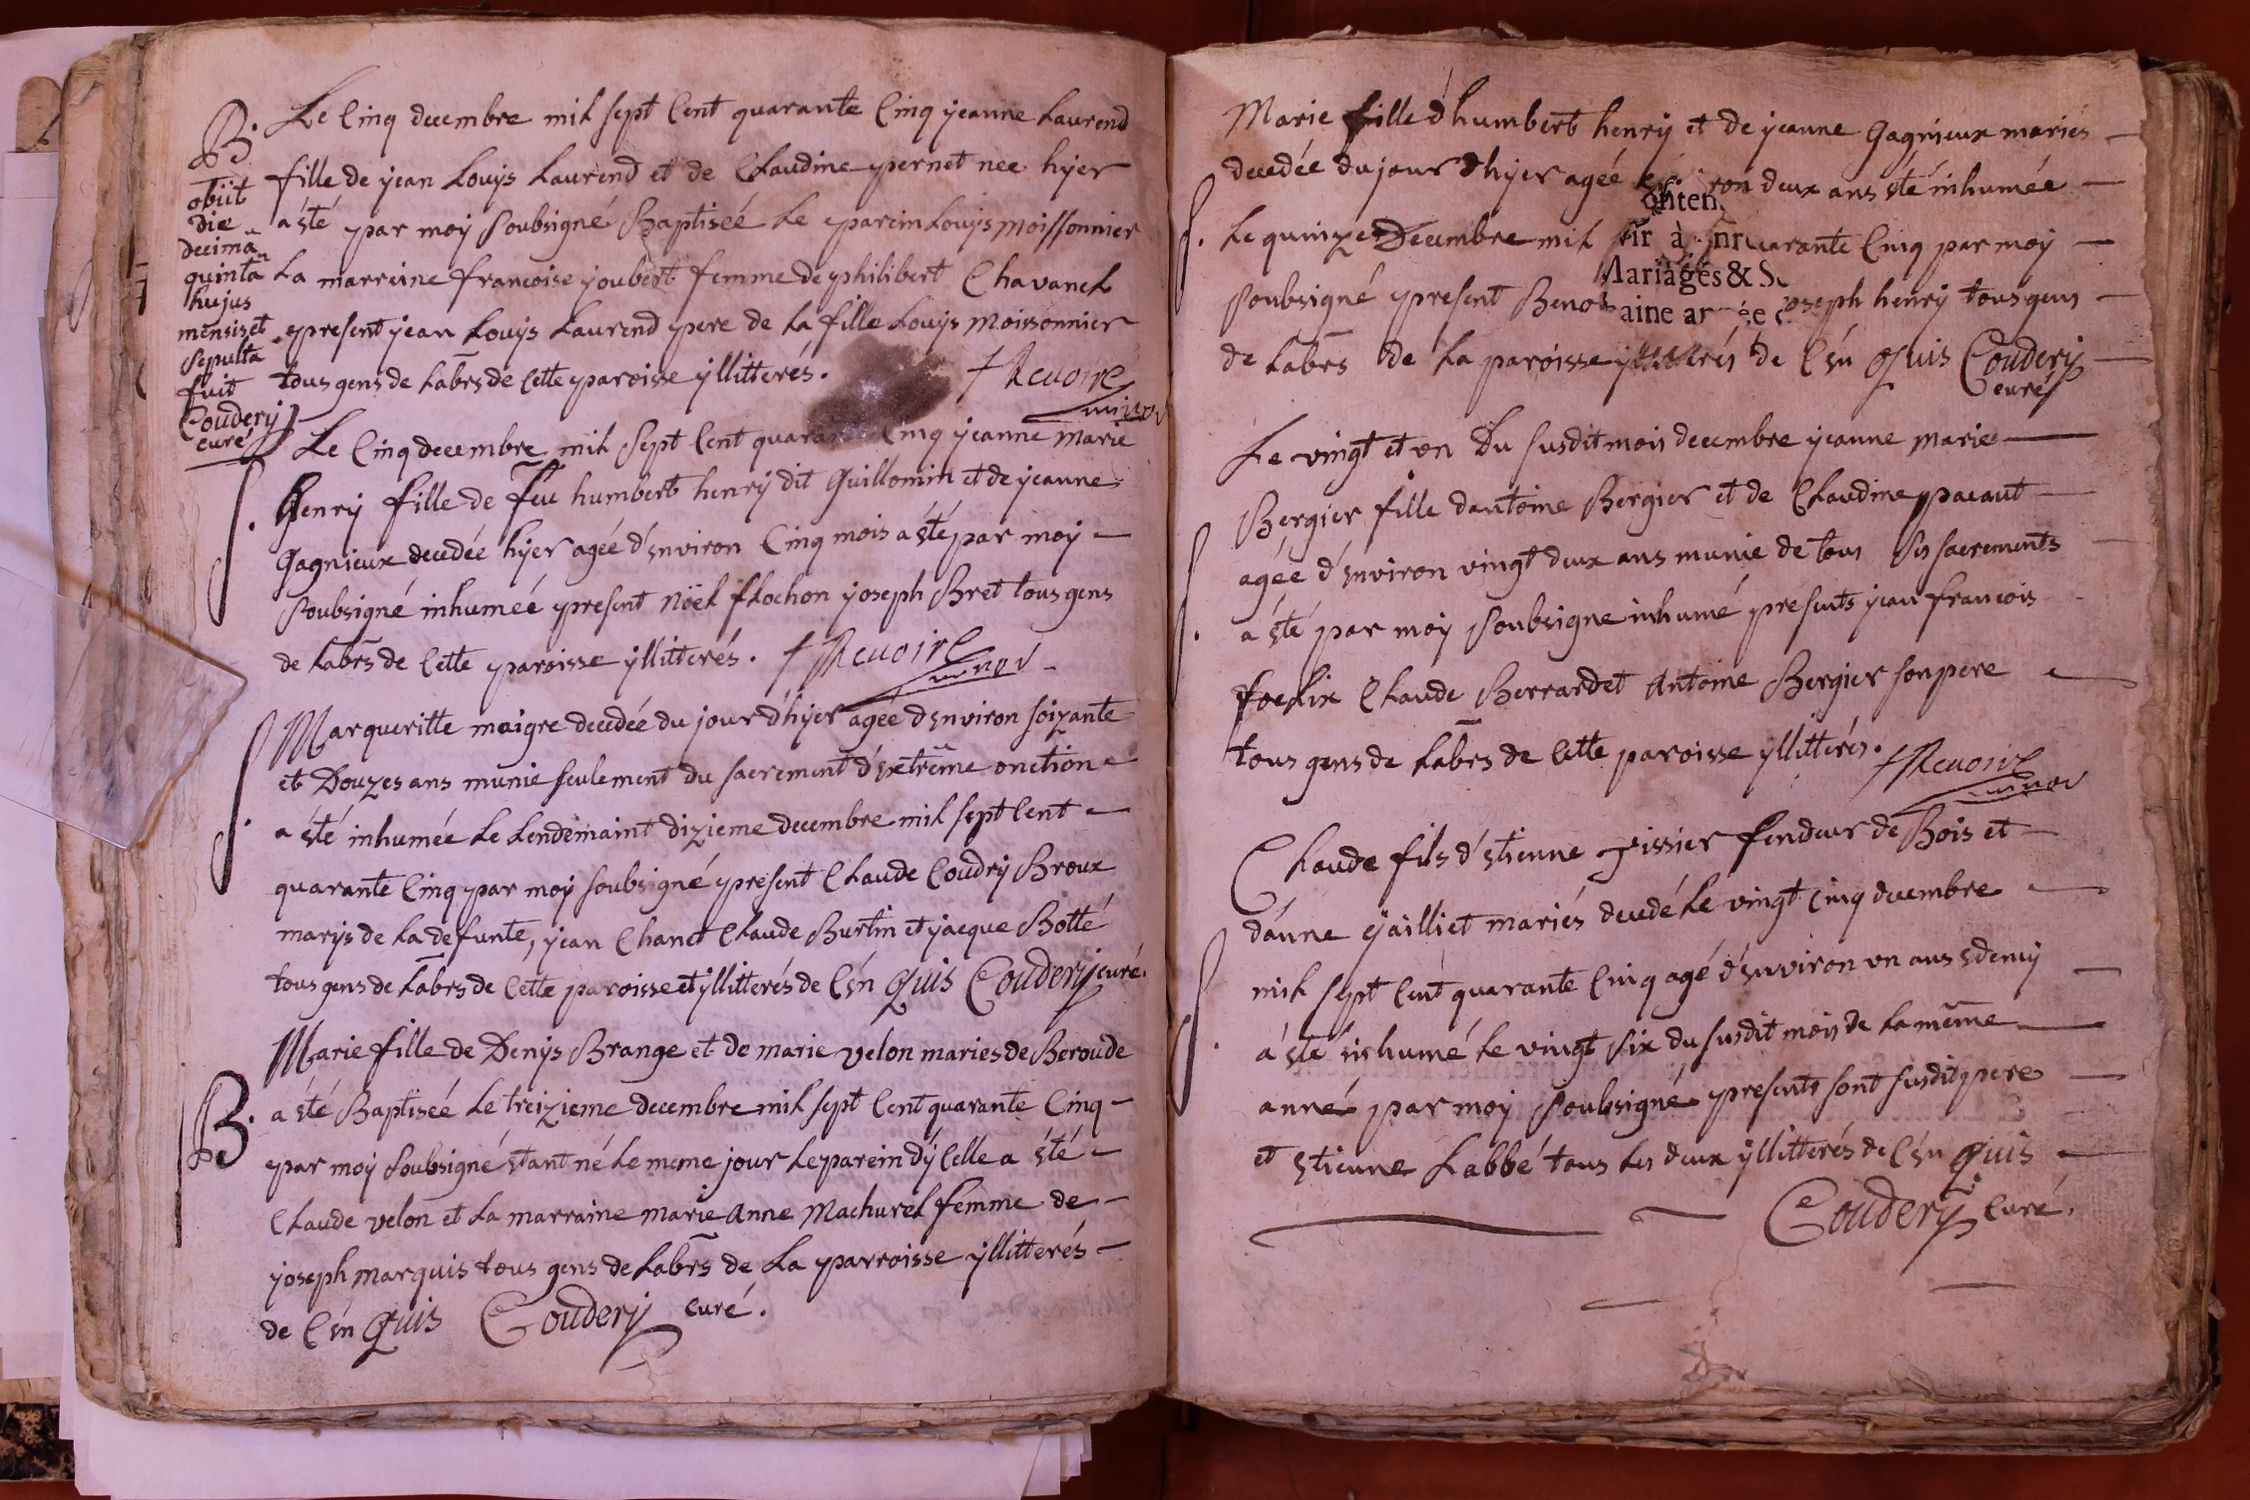 B.
obiit
die
decima
quinta
hujus
mensis et
sepulta
fuit
Couderÿ
curé
Le Cinq decembre mil sept Cent quarante Cinq yeanne Laurend
fille de yean Louÿs Laurend et de Claudine pernet nee hÿer
a ésté par moÿ soubsigné Baptiseé Le parein Louÿs moissonnier
La marreine francoise youbert femme de philibert Chavanel
present yean Louÿs Laurend pere de La fille Louÿs moissonnier
tous gens de Labrs de Cette paroisse ÿllitterés. Revoire
vicar
Le Cinq decembre mil sept Cent quarante Cinq yeanne marie
S. henrÿ fille de feu humbert henrÿ dit Guillomin et de yeanne
Gagnieux decedée hÿer ageé d'environ Cinq mois a ésté par moÿ
soubsigné inhumeé present Nöel flochon yoseph Bret tous gens
de Labrs de Cette paroisse ÿllitterés. Revoire
S. Marqueritte maigre decedée du jour d'hÿer ageé d'environ soizante
et Douzes ans munie seulement du sacrement d'extrême onction
a ésté inhumée Le Lendemaint dizieme decembre mil sept Cent
quarante Cinq par moÿ soubsigné present Claude Coudrÿ Broux
marÿs de La defunte, yean Chanet Claude Burtin et yacque Botté
tous gens de Labrs de Cette paroisse et ÿllitterés de Cén quis Couderÿ curé.
Marie fille de Denÿs Brange et de marie velon maries de Beroude
B. a ésté Baptiseé Le treizieme decembre mil sept Cent quarante Cinq
par moÿ soubsigné éstant né Le meme jour Le parein d'ÿCelle a ésté
Claude velon et La marraine marie Anne Machurel femme de
yoseph marquis tous gens de Labrs de La parroisse ÿllitterés
de Cén quis Couderÿ curé.
Marie fille d'humbert henrÿ et de yeanne Gagnieux mariés
decedée du jour d'hÿer ageé deux ans ésté inhumée
S. Le quinze Decembre mil quarante Cinq par moÿ
soubsigné present yoseph henrÿ tous gens
de Labrs de La paroisse de Cén quis Couderÿ
curé
Mariages & S
Le vingt et vn Du susdit mois decembre yeanne marie
Bergier fille dantoine Bergier et de Claudine pacaut
S. agée d'environ vingt deux ans munie de tous ses sacrements
a ésté par moÿ soubsigne inhumé presents yean francois
foelix Claude Berrardet Antoine Bergier son pere
tous gens de Labrs de Cette paroisse ÿllitterés. Revoire
Claude fils d'éstienne Tissier fendeur de Bois et
d'anne mariés decedé Le vingt Cinq decembre
S. mil sept Cent quarante Cinq agé d'environ vn ans é demÿ
a ésté inhumé Le vingt six du susdit mois de La même
anné par moÿ soubsigné presents sont susdit pere
et éstienne Labbé tous Les deux ÿllitterés de Cén quis
Couderÿ Curé.